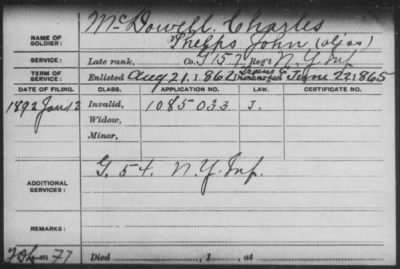 McDowell, Charles
NAME OF SOLDIER: Phelps John (alias)
SERVICE: Late rank, Co. G 157 Reg't N.Y. Inf
TERM OF SERVICE: Enlisted Aug 21. 1862 Discharged June 22 1865
DATE OF FILING. CLASS. APPLICATION NO. LAW. CERTIFICATE NO.
1892 Jan 12 Invalid, 1085 033 J.
Widow,
Minor,
ADDITIONAL SERVICES: G. 54. N.Y. Inf.
REMARKS:
77 Died , 1 , at